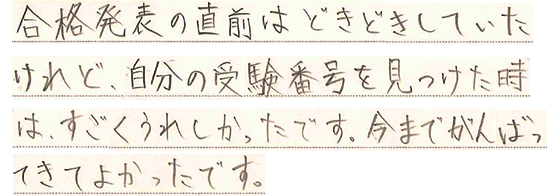 合格発表の直前はどきどきしていた
けれど、自分の受験番号を見つけた時
は、すごくうれしかったです。今までがんばっ
てきてよかったです。